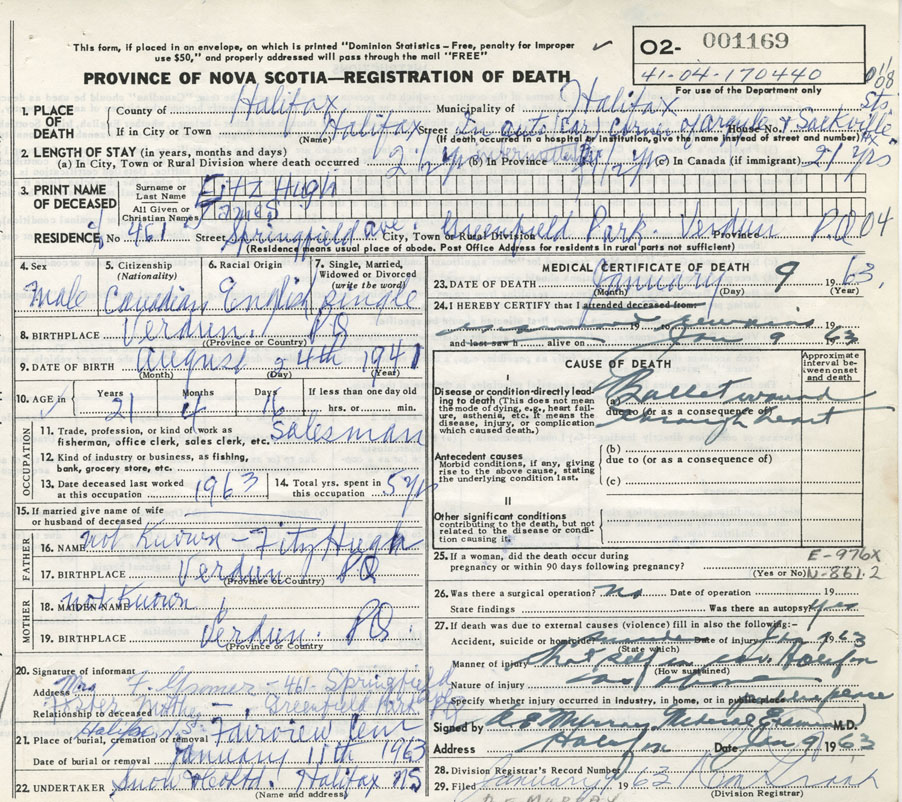 This form, if placed in an envelope, on which is printed "Dominion Statistics – Free, penalty for improper
use $50," and properly addressed will pass through the mail "FREE"
O2- 001169
41-04-170440
PROVINCE OF NOVA SCOTIA—REGISTRATION OF DEATH
For use of the Department only
1. PLACE OF DEATH
County of Halifax Municipality of Halifax
If in City or Town Halifax (Name) Street In auto (car) Corner of Argyle & Sackville Sts. House No.
(If death occurred in a hospital or institution, give the name instead of street and number)
2. LENGTH OF STAY (in years, months and days)
(a) In City, Town or Rural Division where death occurred (b) In Province (c) In Canada (if immigrant) 21 yrs
3. PRINT NAME OF DECEASED
Surname or Last Name Fitz Hugh
All Given or Christian Names James
RESIDENCE No 461 Street Springfield ave. City, Town or Rural Division Greenfield Park. Verdun Province P.Q 04
(Residence means usual place of abode. Post Office Address for residents in rural parts not sufficient)
4. Sex Male
5. Citizenship (Nationality) Canadian
6. Racial Origin English
7. Single, Married, Widowed or Divorced (write the word) Single
8. BIRTHPLACE Verdun. PQ
(Province or Country)
9. DATE OF BIRTH August 24th 1941
(Month) (Day) (Year)
10. AGE in Years 21 Months 4 Days 16 If less than one day old hrs. or min.
OCCUPATION
11. Trade, profession, or kind of work as fisherman, office clerk, sales clerk, etc. Salesman
12. Kind of industry or business, as fishing, bank, grocery store, etc.
13. Date deceased last worked at this occupation 1963
14. Total yrs. spent in this occupation 5 yr
15. If married give name of wife or husband of deceased
FATHER
16. NAME not Known – Fitz Hugh
17. BIRTHPLACE Verdun PQ
(Province or Country)
MOTHER
18. MAIDEN NAME not Known
19. BIRTHPLACE Verdun. PQ.
(Province or Country)
20. Signature of informant
Address Mrs F. – 461 Springfield
Relationship to deceased Foster Mother – Greenfield Park
21. Place of burial, cremation or removal Halifax N.S. Fairview Cem
Date of burial or removal January 11th 1963
22. UNDERTAKER Snow & Co Ltd. Halifax NS
(Name and address)
MEDICAL CERTIFICATE OF DEATH
23. DATE OF DEATH January 9 1963
(Month) (Day) (Year)
24. I HEREBY CERTIFY that I attended deceased from:
19 to 19
and last saw h alive on Jan 9 1963
CAUSE OF DEATH
Approximate interval between onset and death
I
Disease or condition directly leading to death (This does not mean the mode of dying, e.g., heart failure, asthenia, etc. It means the disease, injury, or complication which caused death.)
(a) Bullet wound
due to (or as a consequence of)
through heart
Antecedent causes
Morbid conditions, if any, giving rise to the above cause, stating the underlying condition last.
(b)
due to (or as a consequence of)
(c)
II
Other significant conditions
contributing to the death, but not related to the disease or condition causing it.
25. If a woman, did the death occur during pregnancy or within 90 days following pregnancy?
(Yes or No)
E-976X
N-861.2
26. Was there a surgical operation? No Date of operation 19
State findings Was there an autopsy? Yes
27. If death was due to external causes (violence) fill in also the following:–
Accident, suicide or homicide? Suicide Date of injury Jan 9 1963
(State which)
Manner of injury Shot self in car Halifax
(How sustained)
Nature of injury
Specify whether injury occurred in industry, in home, or in public place
Signed by A E Murray Medical Examiner M.D.
Address Halifax Date Jan 9 1963
28. Division Registrar's Record Number
29. Filed January 1963
(Division Registrar)